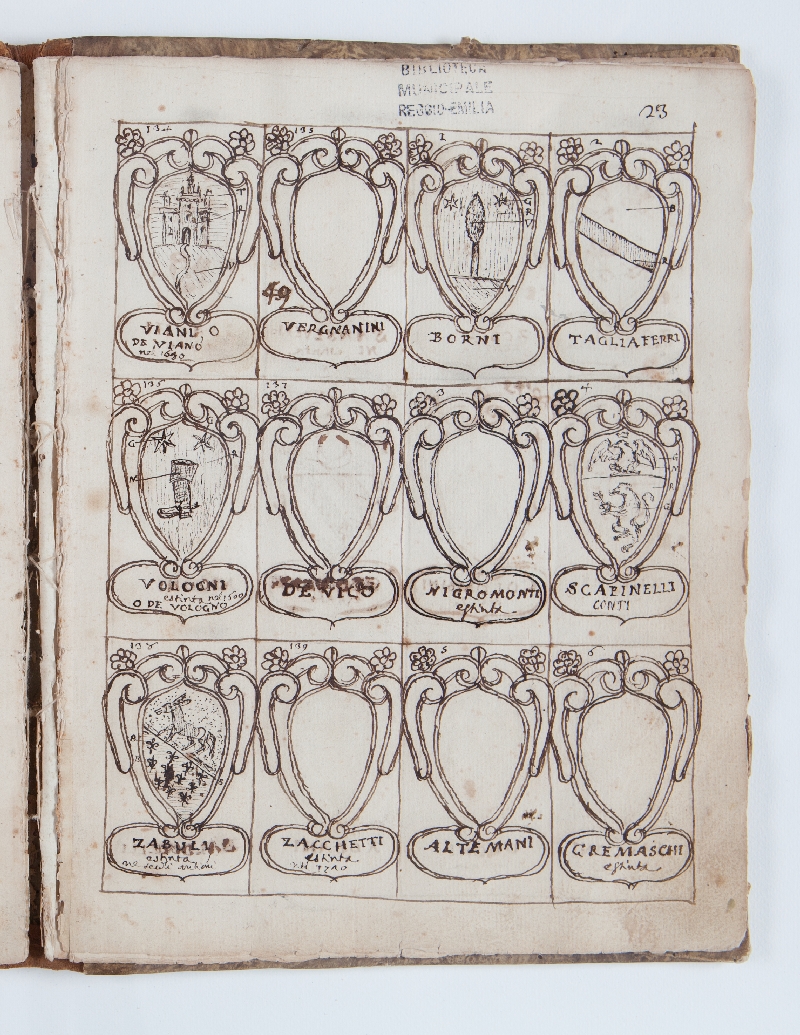 BIBLIOTECA
MUNICIPALE
REGGIO-EMILIA
23
134
135
1
2
VIANI O
DE VIANO
nel 1640
49
VERGNANINI
BORNI
G
R
V
V
TAGLIAFERRI
B
R
136
137
3
4
G
R
VOLOGNI
estinta nel 1600
O DE VOLOGNO
DE VICO
NIGROMONTI
estinta
SCAPINELLI
CONTI
138
139
5
6
ZABULI
estinta
ZACCHETTI
estinta
ALTEMANI
CREMASCHI
estinta